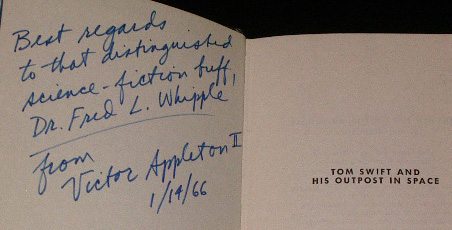 Best regards
to that distinguished
science-fiction buff,
Dr. Fred L. Whipple
from
Victor Appleton II
1/14/66
TOM SWIFT AND
HIS OUTPOST IN SPACE